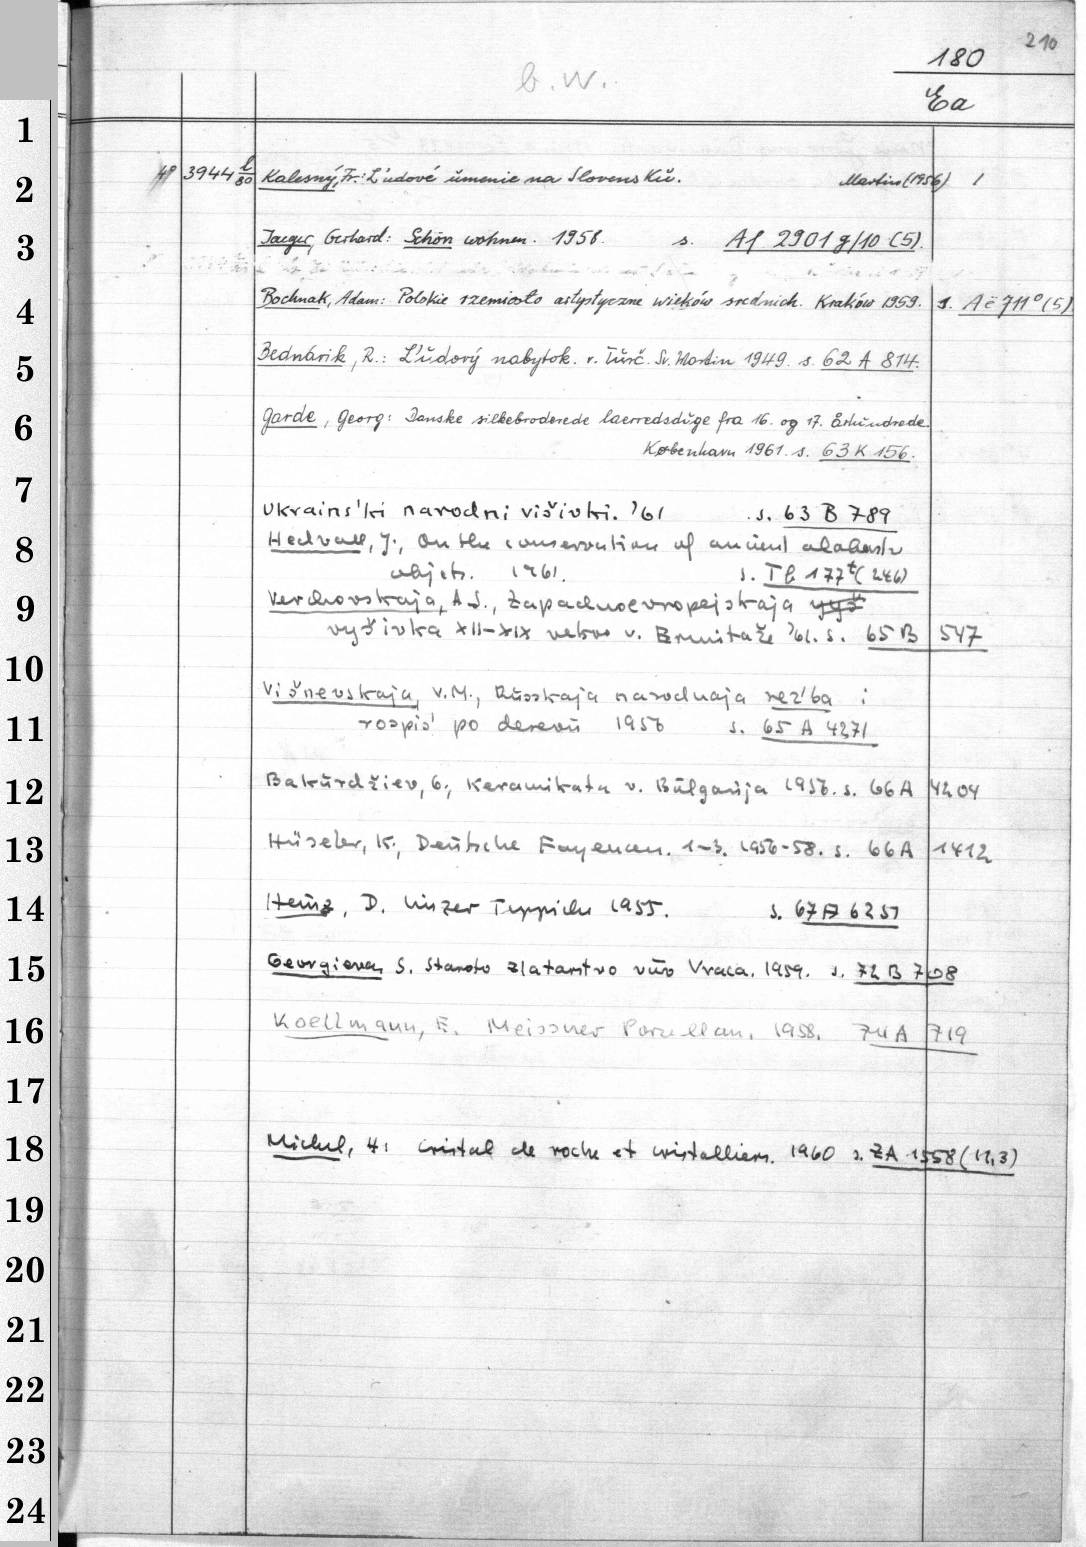 210
180
b.W.
Ea
49 3944 l/80 Kalesný, Fr.: L'udové umenie na Slovensku. Martin (1956) 1
Jaeger, Gerhard: Schön wohnen. 1958. s. Af 2901 g/10 (5).
Bochnak, Adam: Polskie rzemiosło artystyczne wieków srednich. Kraków 1959. s. Ač 711° (5)
Bednárik, R.: L'udový nabytok. v. Turč. Sv. Martin 1949. s. 62 A 814.
Garde, Georg: Danske silkebroderede laerredsduge fra 16. og 17. århundrede.
København 1961. s. 63 K 156.
Ukrains'ki narodni višivki. '61 s. 63 B 789
Hedvall, J., On the conservation of ancient alabaster
objets. 1961. s. Tb 177t (246)
Verchovskaja, A.S., Zapadnoevropejskaja vyš
vyšivka XII-XIX vekov v. Ermitaže '61. s. 65 B 547
Višnevskaja, V.M., Russkaja narodnaja rez'ba i
rospis' po derevu 1956 s. 65 A 4271
Bakurdžiev, G., Keramikata v. Bulgarija 1956. s. 66 A 4204
Hüseler, K., Deutsche Fayencen. 1-3. 1956-58. s. 66 A 1412
Heinz, D. Linzer Teppiche 1955. s. 67 A 6251
Georgieva, S. Staroto zlatarstvo vuv Vraca. 1959. s. 72 B 708
Koellmann, E. Meissner Porzellan. 1958. 74 A 719
Michel, H: Cristal de roche et cristalliers. 1960 s. ZA 1558 (11,3)
1
2
3
4
5
6
7
8
9
10
11
12
13
14
15
16
17
18
19
20
21
22
23
24